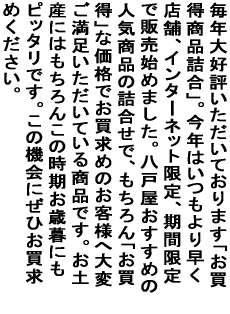 毎年大好評いただいております「お買
得商品詰合」。今年はいつもより早く
店舗、インターネット限定、期間限定
で販売始めました。八戸屋おすすめの
人気商品の詰合せで、もちろん「お買
得」な価格でお買求めのお客様へ大変
ご満足いただいている商品です。お土
産にはもちろんこの時期お歳暮にも
ピッタリです。この機会にぜひお買求
めください。